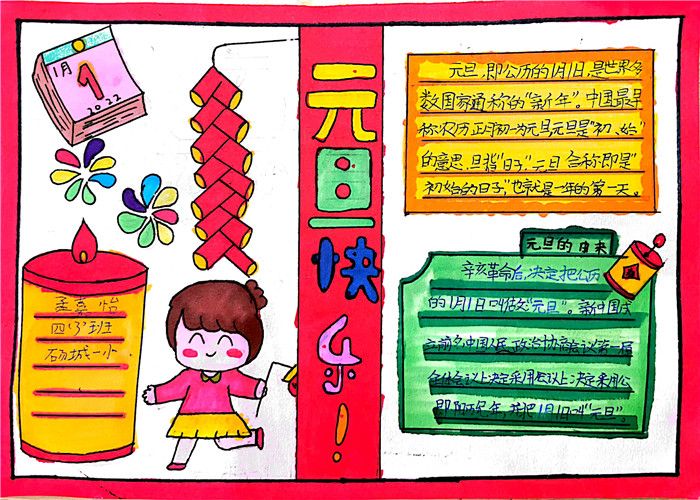 1月
1
2022
元旦快乐！
元旦,即公历的1月1日,是世界多
数国家通称的"新年"。中国最早
称农历正月初一为元旦元旦是"初、始"
的意思,旦指"日子",元旦合称即是"
初始的日子,"也就是一年的第一天。
元旦的由来
辛亥革命后,决定把公历
的1月1日叫做"元旦"。新中国成
立前夕,中国人民政治协商会议第一届
全体会议上决定采用
1月1日叫"元旦"。
四
班
一小